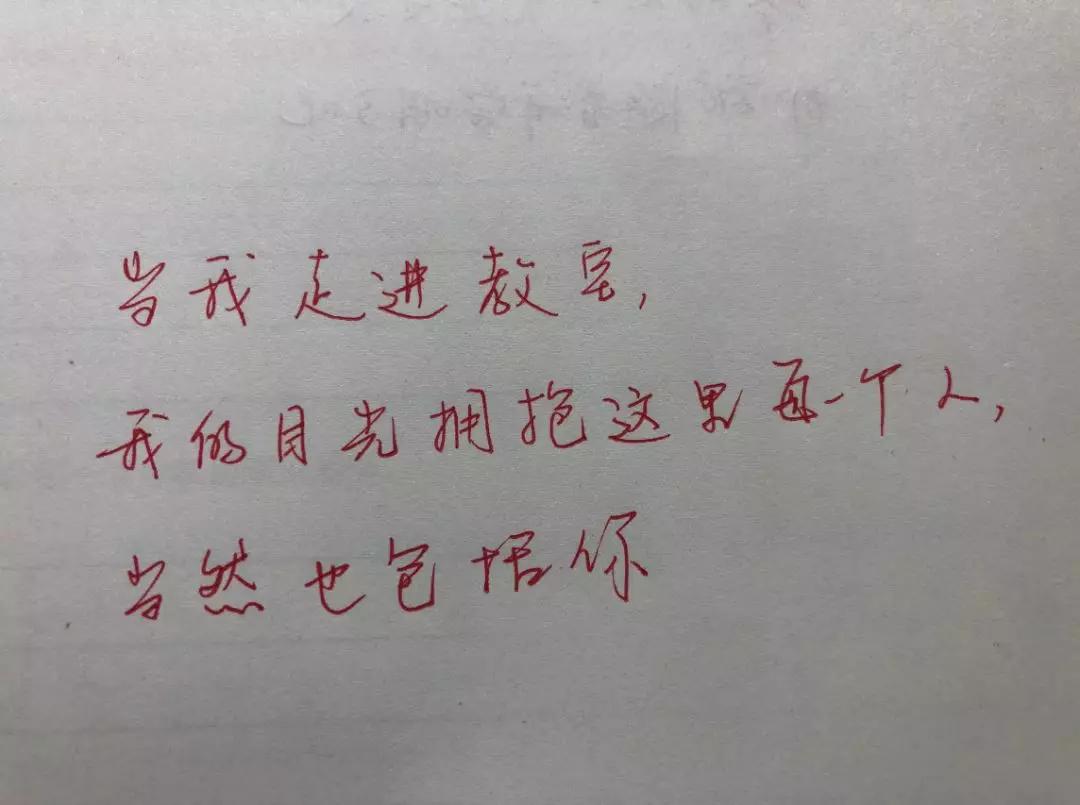 当我走进教室,
我的目光拥抱这里每一个人,
当然也包括你